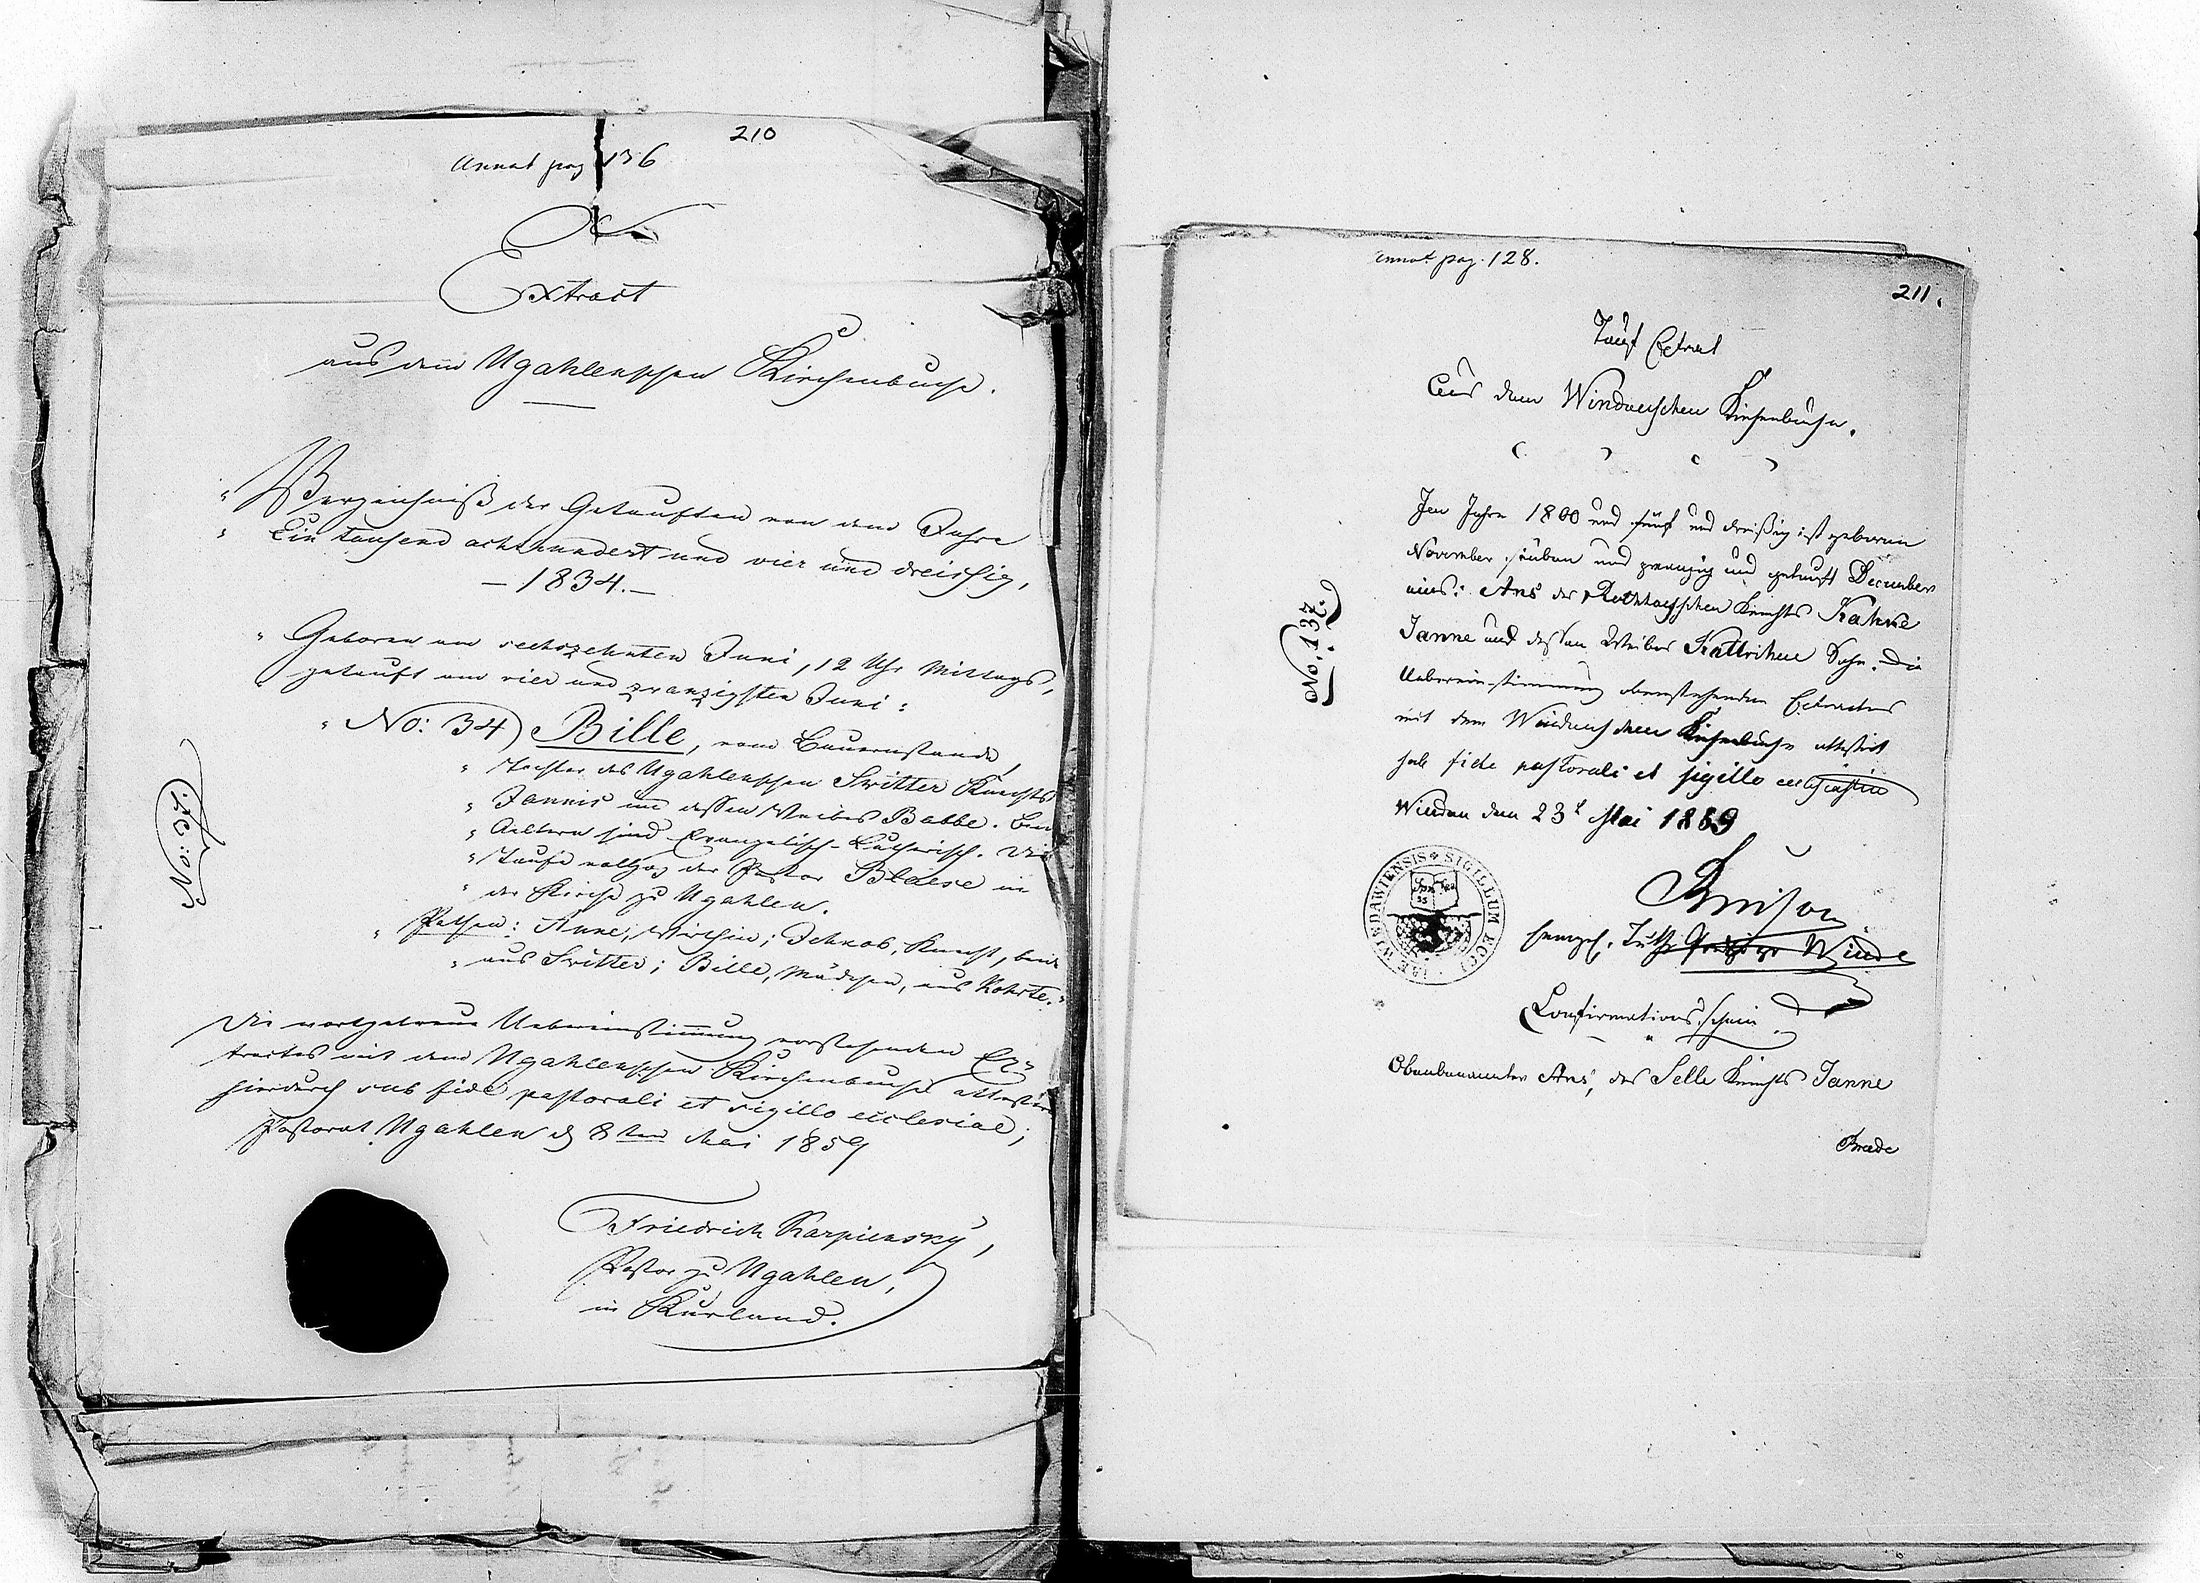 210
Annot pag 136
Extract
aus dem Ugahlenschen Kirchenbuche.
„Verzeichniß der Getauften von dem Jahre
„Ein tausend achthundert und vier und dreissig,
— 1834. —
„Geboren am sechszehnten Juni, 12 Uhr Mittags,
„getauft am vier und zwanzigsten Juni:
„No: 34) Bille, vom Bauernstande,
„Tochter des Ugahlenschen Switter Knechts
„Jannis und dessen Weibes Babbe. Beide
„Aeltern sind Evangelisch-Lutherisch. Die
„Taufe vollzog der Pastor Blaese in
„der Kirche zu Ugahlen.
„Pathen: Anne, Wirthin; Jehkob, Knecht, beide
„aus Switter; Bille, Mädchen, aus Kohrte.“
Die wortgetreue Uebereinstimmung vorstehenden Ex-
tractes mit dem Ugahlenschen Kirchenbuche attestire
hierdurch sub fide pastorali et sigillo ecclesiae;
Pastorat Ugahlen d 8ten Mai 1859
Friedrich Karpiensky,
Pastor zu Ugahlen,
in Kurland.
annot pag. 128.
211.
Tauf Extract
Aus dem Windauschen Kirchenbuche.
Im Jahre 1800 und fünf und dreißig ist geboren
November sieben und zwanzig und getauft December
eins: Ans des Knechts
Janne und dessen Weibes Kattrihne Sohn. Die
Uebereinstimmung obenstehenden Extractes
mit dem Windauschen Kirchenbuche attestirt
sub fide pastorali et sigillo ecclesiastico
Windau den 23t Mai 1859
No: 137.
SIGILLUM ECCLESIAE WINDAWIENSIS
Confirmations schein
Obenbenannter Ans, des Selle Knechts Janne